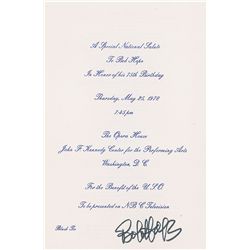 A Special National Salute
To Bob Hope
In Honor of his 75th Birthday
Thursday, May 25, 1978
7:45 pm
The Opera House
John F. Kennedy Center for the Performing Arts
Washington, D. C.
For the Benefit of the U.S.O.
To be presented on NBC Television
Black Tie
Bob Hope